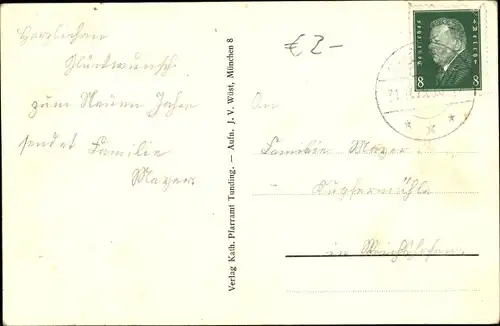 Herzlichen
Glückwunsch
zum Neuen Jahre
sendet Familie
Mayer
€ 2-
Verlag Kath. Pfarramt Tunding. — Aufn. J. V. Wüst, München 8
Deutsches Reich
8 8
An
Familie Mayer
Kupfermühle
in